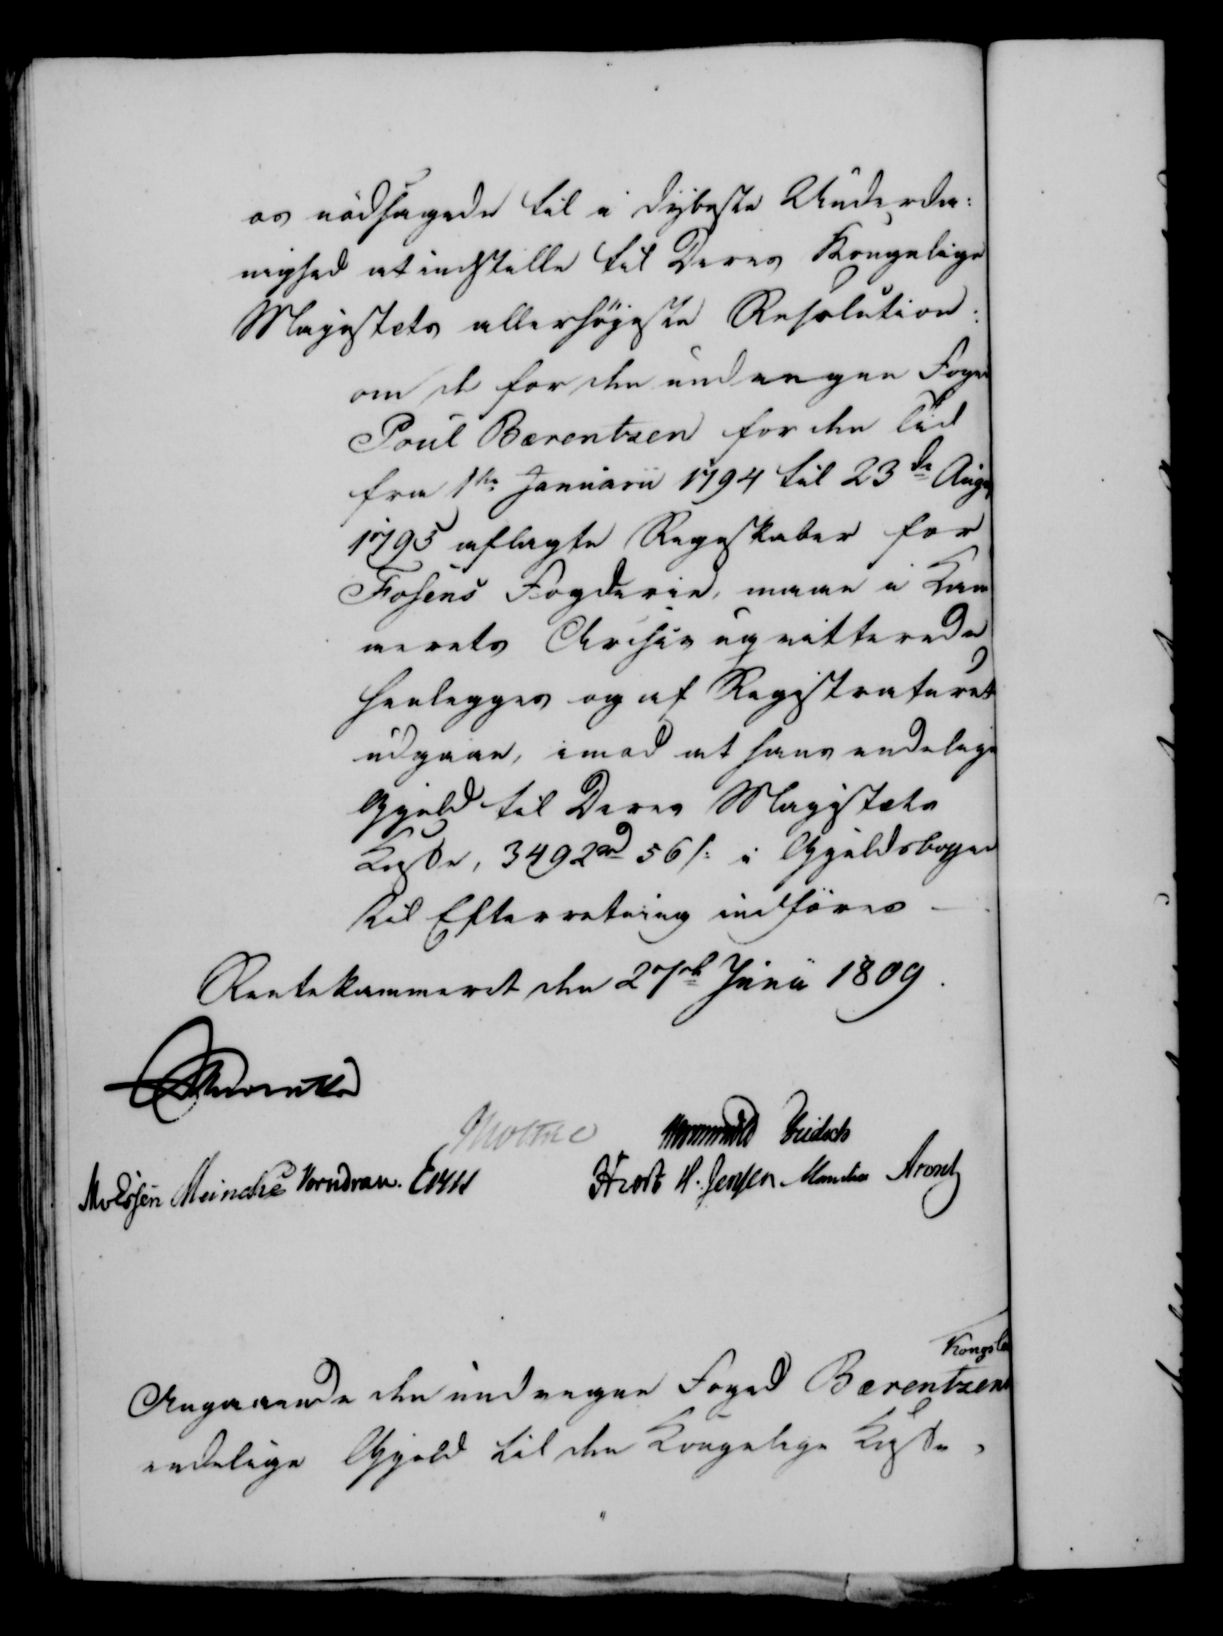 os nödsagede til i dybeste Underda:
nighed at indstille til Deres Kongelige
Majestets allerhöjeste Resolution:
om de for den undvegne Foged
Poul Bærentzen for den Tid
fra 1te Januarii 1794 til 23de Aug
1795 aflagte Regnskaber for
Fosens Fogderie, maae i Kam
merets Archiv uqvitterede
henlegges og af Registraturet
udgaae, imod at hans endelige
Gjeld til Deres Majestets
Kasse, 3492 rd 56 s: i Gjeldsbogen
til Efterretning indföres —
Rentekammeret den 27de Junii 1809.
Moltke
Wormskiold Fridsch
Meinche Vorndran. Frost H. Jensen Arentz
Kongsl
Angaaende den undvegne Foged Bærentzens
endelige Gjeld til den Kongelige Kasse,